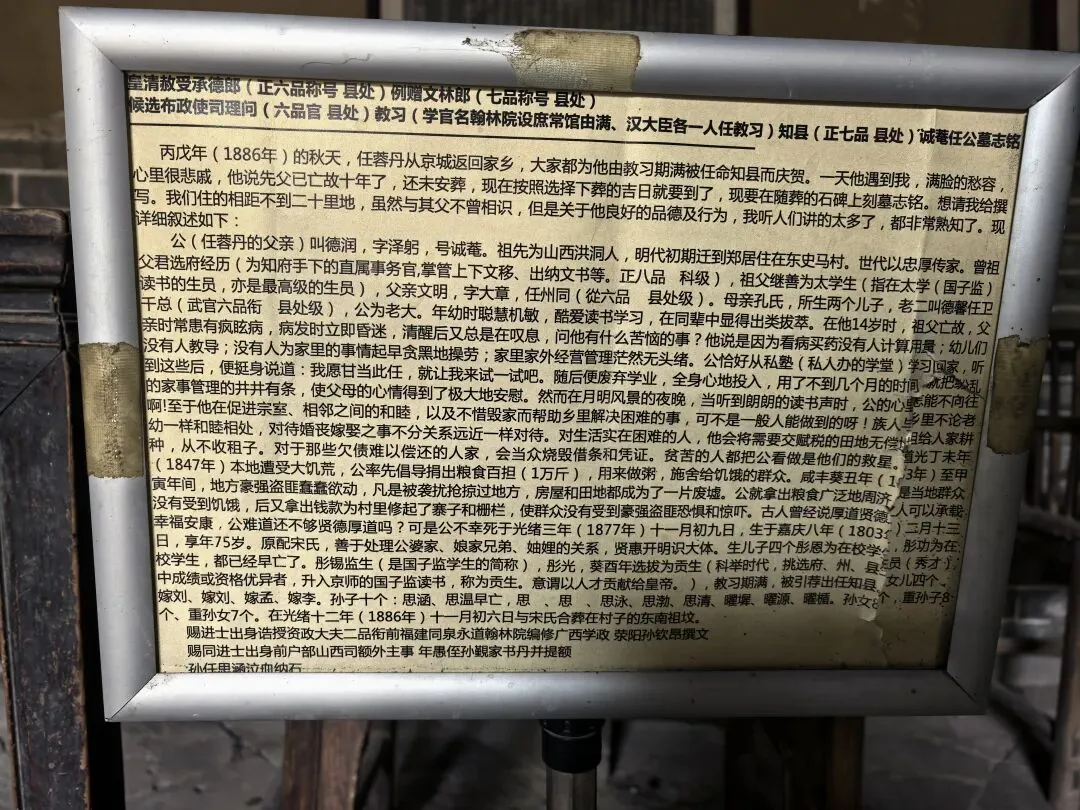 皇清赦受承德郎（正六品称号 县处）例赠文林郎（七品称号 县处）
候选布政使司理问（六品官 县处）教习（学官名翰林院设庶常馆由满、汉大臣各一人任教习）知县（正七品 县处）诚菴任公墓志铭
丙戊年（1886年）的秋天，任蓉丹从京城返回家乡，大家都为他由教习期满被任命知县而庆贺。一天他遇到我，满脸的愁容，
心里很悲戚，他说先父已亡故十年了，还未安葬，现在按照选择下葬的吉日就要到了，现要在随葬的石碑上刻墓志铭。想请我给撰
写。我们住的相距不到二十里地，虽然与其父不曾相识，但是关于他良好的品德及行为，我听人们讲的太多了，都非常熟知了。现
详细叙述如下：
公（任蓉丹的父亲）叫德润，字泽躬，号诚菴。祖先为山西洪洞人，明代初期迁到郑居住在东史马村。世代以忠厚传家。曾祖
父君选府经历（为知府手下的直属事务官,掌管上下文移、出纳文书等。正八品 科级），祖父继善为太学生（指在太学（国子监）
读书的生员，亦是最高级的生员），父亲文明，字大章，任州同（從六品 县处级）。母亲孔氏，所生两个儿子，老二叫德馨任卫
千总（武官六品衔 县处级），公为老大。年幼时聪慧机敏，酷爱读书学习，在同辈中显得出类拔萃。在他14岁时，祖父亡故，父
亲时常患有疯眩病，病发时立即昏迷，清醒后又总是在叹息，问他有什么苦恼的事？他说是因为看病买药没有人计算用量；幼儿们
没有人教导；没有人为家里的事情起早贪黑地操劳；家里家外经营管理茫然无头绪。公恰好从私塾（私人办的学堂）学习回家，听
到这些后，便挺身说道：我愿甘当此任，就让我来试一试吧。随后便废弃学业，全身心地投入，用了不到几个月的时间 就把纷乱
的家事管理的井井有条，使父母的心情得到了极大地安慰。然而在月明风景的夜晚，当听到朗朗的读书声时，公的心里 能不向往
啊!至于他在促进宗室、相邻之间的和睦，以及不惜毁家而帮助乡里解决困难的事，可不是一般人能做到的呀！族人 乡里不论老
幼一样和睦相处，对待婚丧嫁娶之事不分关系远近一样对待。对生活实在困难的人，他会将需要交赋税的田地无偿 给人家耕
种，从不收租子。对于那些欠债难以偿还的人家，会当众烧毁借条和凭证。贫苦的人都把公看做是他们的救星。道光丁未年
（1847年）本地遭受大饥荒，公率先倡导捐出粮食百担（1万斤），用来做粥，施舍给饥饿的群众。咸丰葵丑年（ 3年）至甲
寅年间，地方豪强盗匪蠢蠢欲动，凡是被袭扰抢掠过地方，房屋和田地都成为了一片废墟。公就拿出粮食广泛地周济 是当地群众
没有受到饥饿，后又拿出钱款为村里修起了寨子和栅栏，使群众没有受到豪强盗匪恐惧和惊吓。古人曾经说厚道贤德 人可以承载
幸福安康，公难道还不够贤德厚道吗？可是公不幸死于光绪三年（1877年）十一月初九日，生于嘉庆八年（1803 二月十三
日，享年75岁。原配宋氏，善于处理公婆家、娘家兄弟、妯娌的关系，贤惠开明识大体。生儿子四个彤恩为在校学 ，彤功为在
校学生，都已经早亡了。彤锡监生（是国子监学生的简称），彤光，葵酉年选拔为贡生（科举时代，挑选府、州、 员（秀才）
中成绩或资格优异者，升入京师的国子监读书，称为贡生。意谓以人才贡献给皇帝。），教习期满，被引荐出任知县 女儿四个、
嫁刘、嫁刘、嫁孟、嫁李。孙子十个：思涵、思温早亡，思 、思 、思泳、思渤、思清、曜墀、曜源、曜楯。孙女8个，重孙子8
个、重孙女7个。在光绪十二年（1886年）十一月初六日与宋氏合葬在村子的东南祖坟。
赐进士出身诰授资政大夫二品衔前福建同泉永道翰林院编修广西学政 荥阳孙钦昂撰文
赐同进士出身前户部山西司额外主事 年愚侄孙觐家书丹并提额
孙任思涵泣血纳石